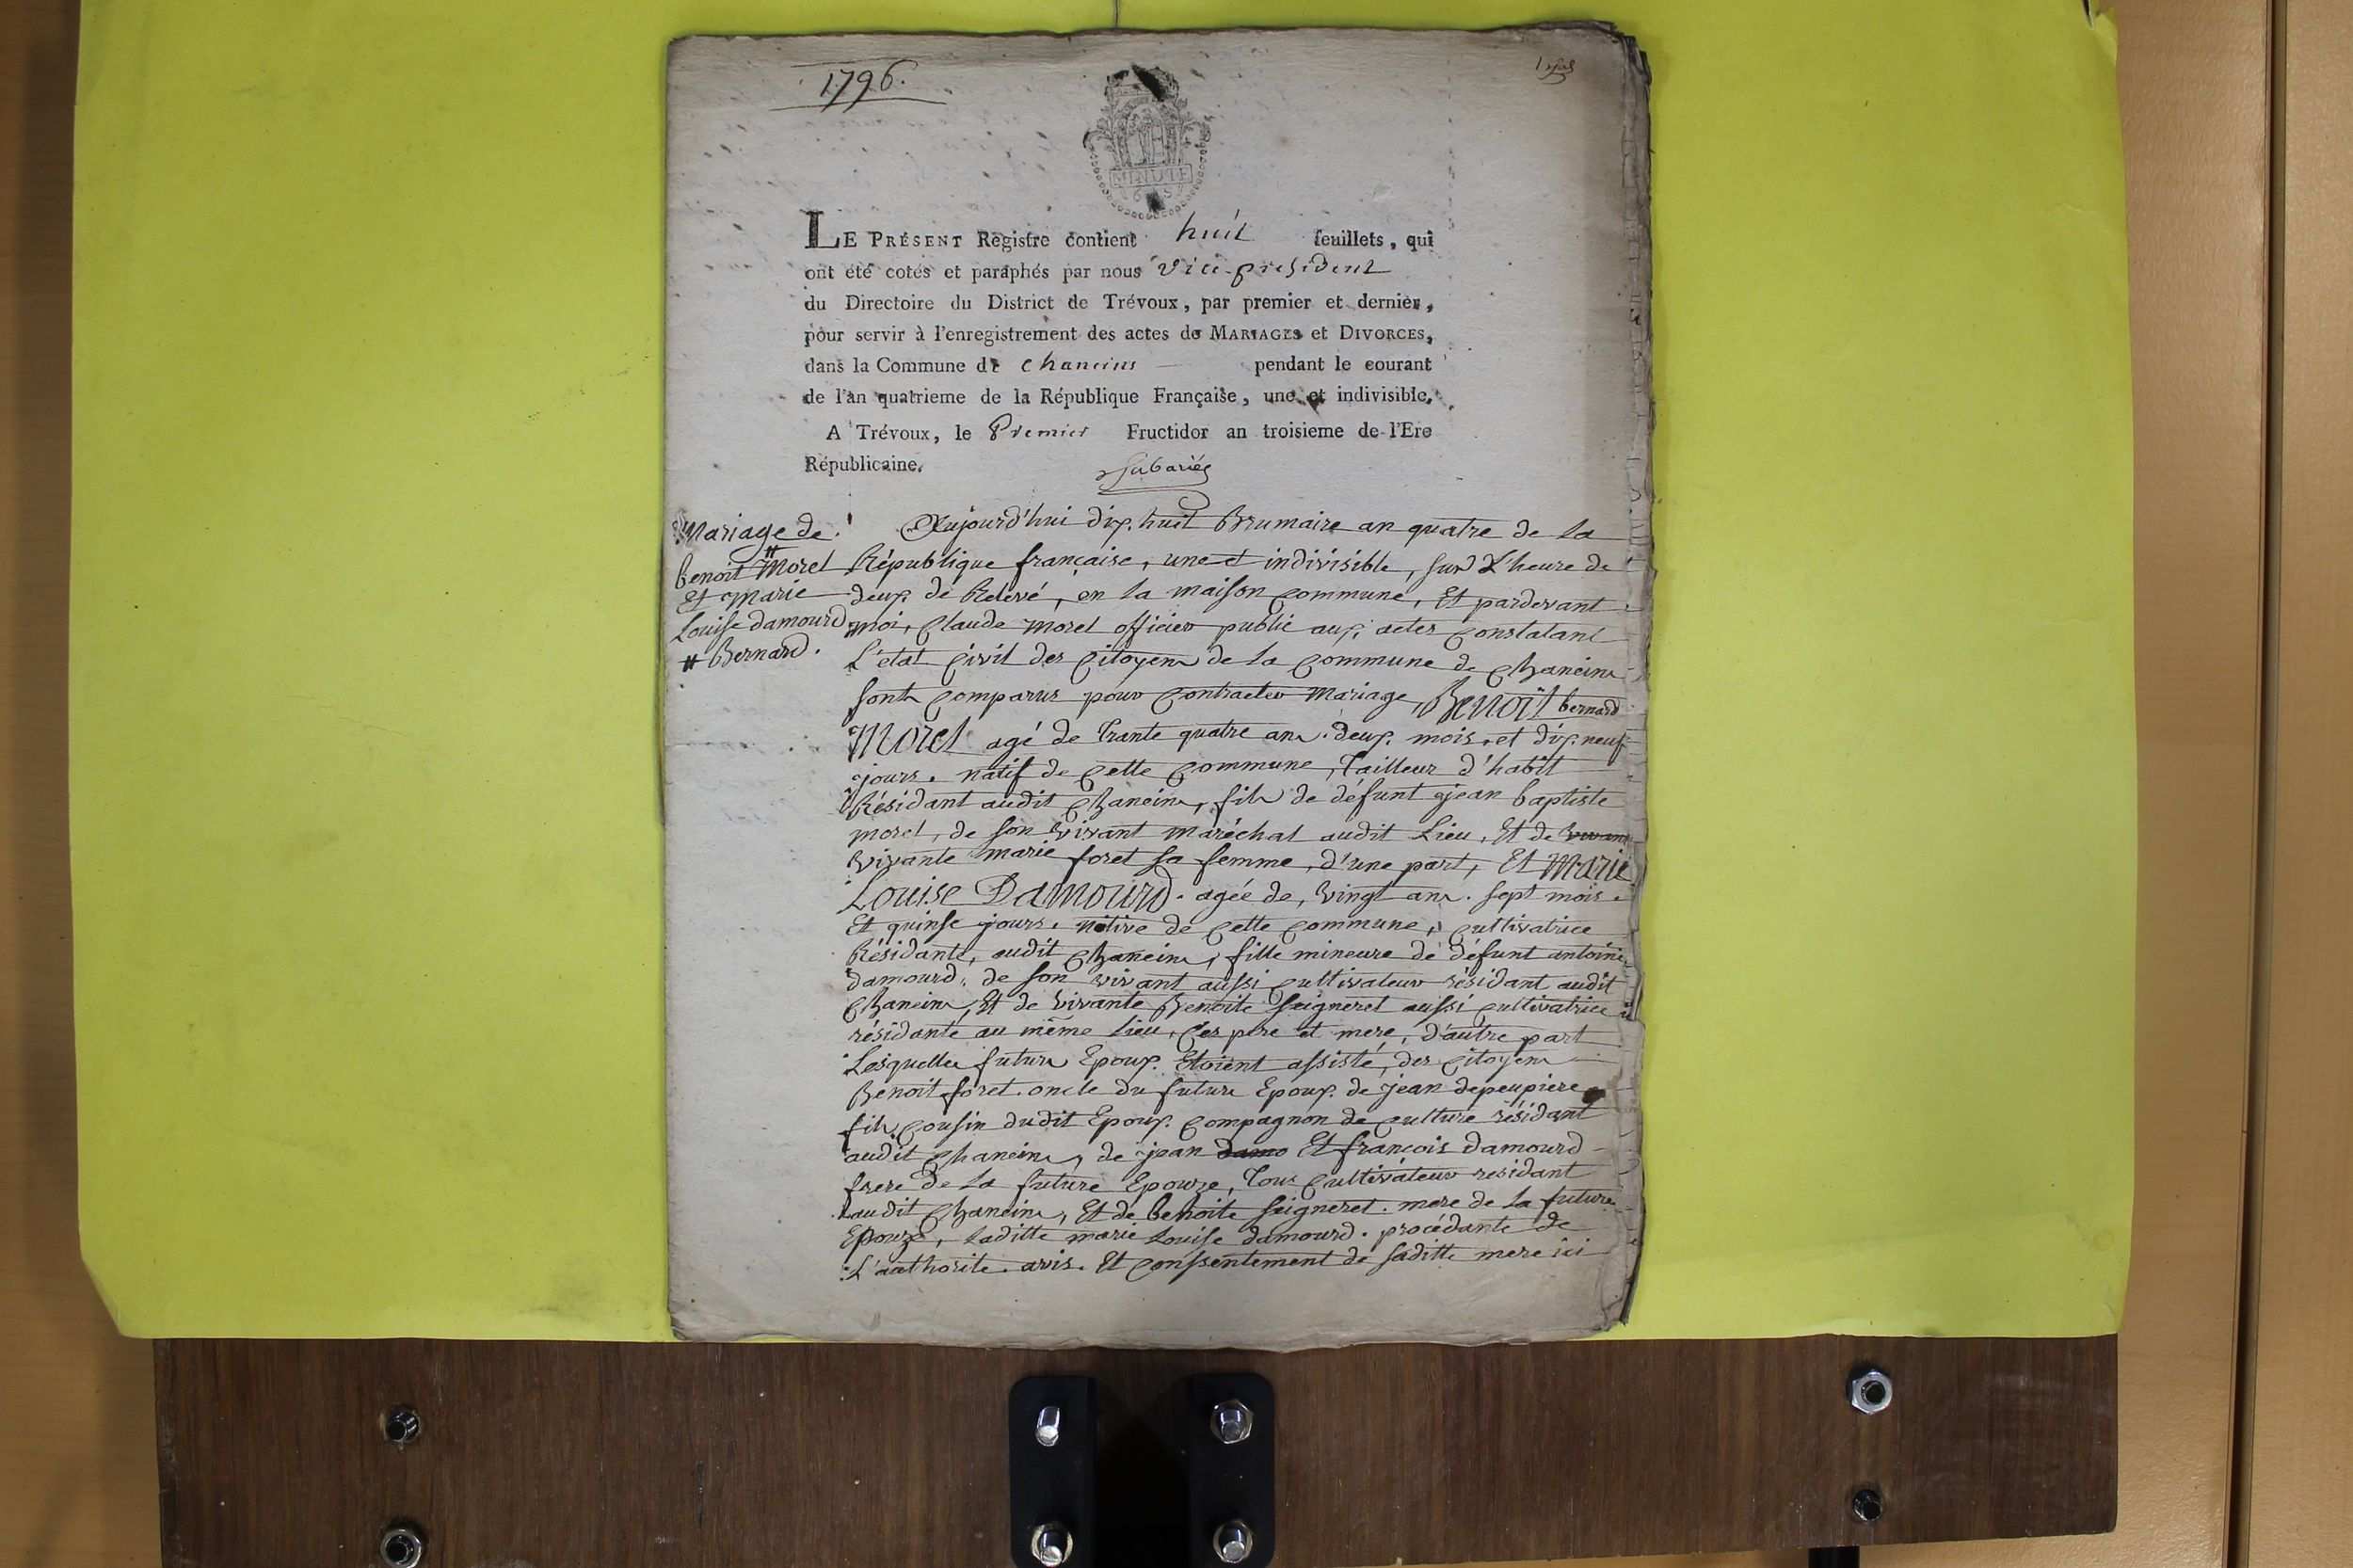 1796.
MINUTE
LE PRÉSENT Registre contient huit feuillets, qui
ont été cotés et paraphés par nous vice-president
du Directoire du District de Trévoux, par premier et dernier,
pour servir à l'enregistrement des actes de MARIAGES et DIVORCES,
dans la Commune de chaneins pendant le courant
de l'an quatrieme de la République Française, une et indivisible.
A Trévoux, le Premier Fructidor an troisieme de l'Ere
Républicaine.
Mariage de
benoit # Morel
Et Marie
Louise damourd
# Bernard.
Aujourd'hui dix huit Brumaire an quatre de la
République française, une et indivisible, sur L'heure de
deux de Relevé, en la maison commune, Et pardevant
moi, Claude Morel officier public aux actes constatant
L'etat civil des citoyens de la commune de chaneins
sont comparus pour contracter Mariage, Benoit bernard
Morel agé de trante quatre ans. deux mois, et dix neuf
jours. natif de cette commune, Tailleur d'habit
Résidant audit chaneins, fils de défunt jean baptiste
morel, de son vivant maréchal audit Lieu, Et de vivante
vivante marie foret sa femme, d'une part, Et Marie
Louise Damourd. agée de, vingt ans. sept mois.
Et quinse jours. native de cette commune, cultivatrice
Résidante, audit chaneins, fille mineure de défunt antoine
damourd, de son vivant aussi cultivateur résidant audit
chaneins, Et de vivante Benoite seigneret aussi cultivatrice
résidante au même Lieu, ces pere et mere, d'autre part
Lesquelles futurs Epoux. Etoient assisté, des citoyens
Benoit foret. oncle du future Epoux. de jean depeupiere
fils, cousin dudit Epoux. compagnon de culture résidant
audit chaneins, de jean damo Et francois damourd
frere de la future Epouze, Tous cultivateur residant
audit chaneins, Et de benoite seigneret. mere de la future
Epouze, Laditte marie Louise damourd. procédante de
L'authorite. avis. Et conssentement de saditte mere ici